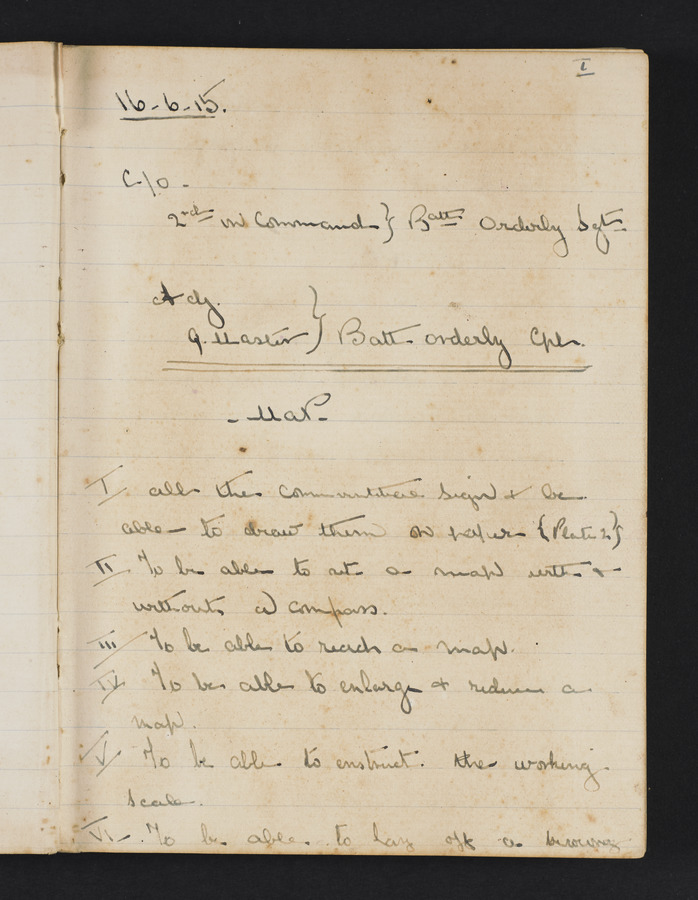 1
16-6-15.
C/O -
2nd in Command } Batt Orderly Sgt.
Adj.
Q. Master } Batt. orderly Cpl.
- Map -
I all the sign & be
able to draw them on paper {Plate 2}
II To be able to set a map with &
without a compass.
III To be able to read a map.
IV To be able to enlarge & reduce a
map.
V To be able to construct. the working
scale.
VI - To be able to lay off a bearing